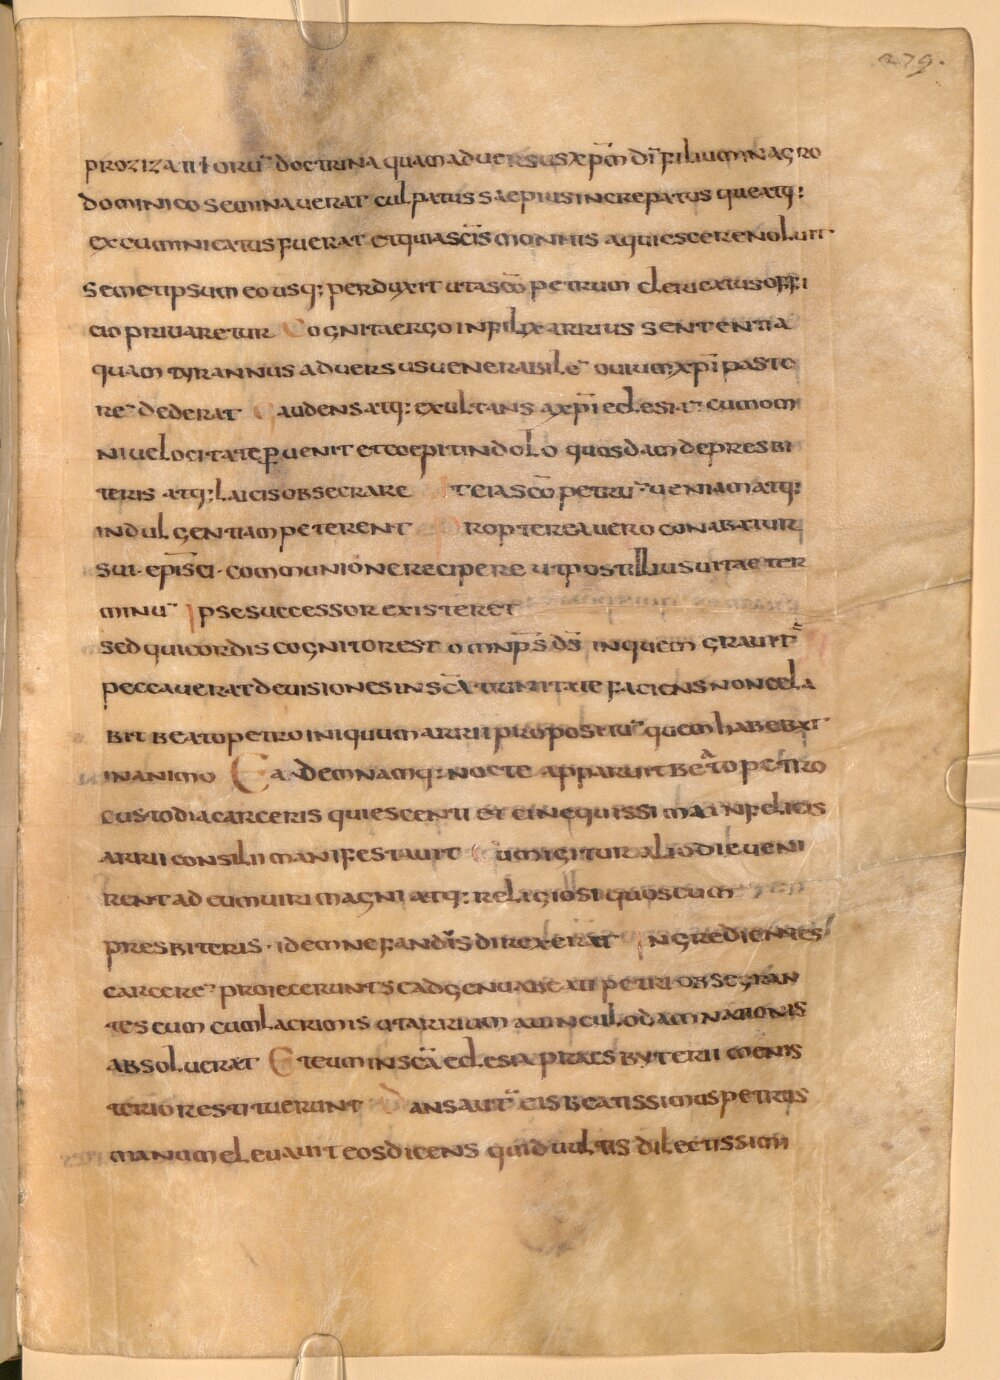 279.
prozizaniorū doctrina quam adversus xp̄m dī filium in agro
dominico seminaverat culpatus saepius increpatus queatq;
excuminicatus fuerat et quia sc̄is monitis aquiescere noluit
semetipsum eo usq; perduxit ut a sc̄o petrum clericatus offi
cio privaretur Cognita ergo infilix arrius sententia
quam tyrannus adversus venerabilē ovium xp̄i pasto
rē dederat Gaudens atq; exultans a xp̄i eclesiā cum om
ni velocitate ꝑvenit et coepit in dolo quosdam depresbi
teris atq; laicis obsecrare teia sc̄o petrū veniam atq;
indulgentiam peterent Propterea vero conabatur
sui · epis̄ci · communione recipere ut post illius vitae ter
minū Ipse successor existeret
sed qui cordis cognitor est omnp̄s d̄s in quem gravit̄
peccaverat devisiones in sc̄a trinitate faciens non cela
bit beato petro iniquum arrii propositū quem habebat
in animo Eandem namq; nocte apparuit beato petro
custodia carceris quiescenti et ei nequissima infelicis
arrii consilii manifestavit Cum igitur alio die veni
rent ad eum viri magni atq; religiosi quos cum
presbiteris · idem nefandus direxerat Ingredientes
carcerē proiecerunt se ad genua beati petri obsecran
tes eum cum lacrimis ut arrium a vinculo damnationis
absolverat Et eum in sc̄a eclesia praesbyterii menis
terio restituerunt Dans aut̄ eis beatissimus petrus
manum elevavit eos dicens quid vultis dilectissimi